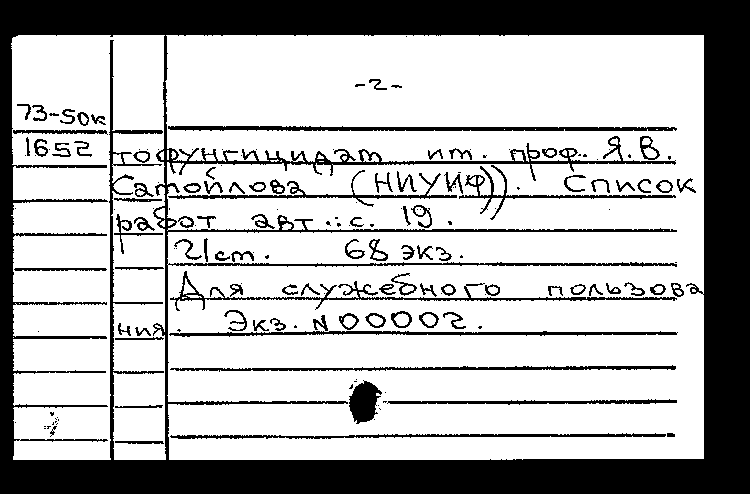 -2-
73-50к
1652
тофунгицидат им. проф. Я.В.
Самойлова (НИУИФ)). Список
работ авт.: с. 19.
21 ст. 68 экз.
Для служебного пользова
ния. Экз. N 00002.